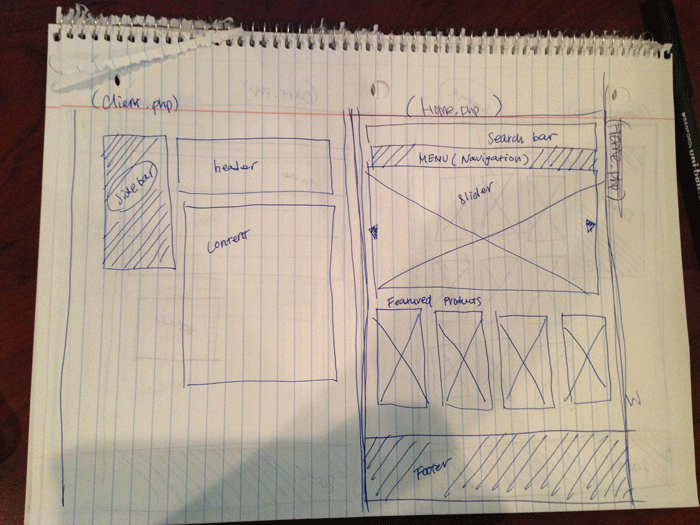 (Client.php)
Sidebar
header
Content
(Home.php)
Search bar
MENU (Navigation)
Slider
Featured Products
Footer
(Home.php)